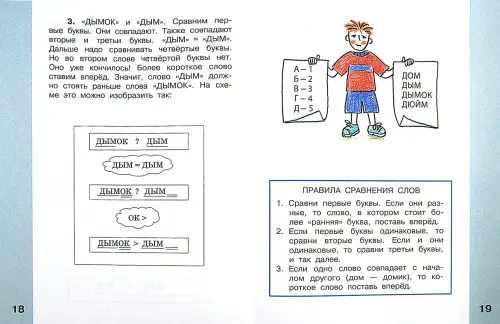 3. «ДЫМОК» и «ДЫМ». Сравним пер-
вые буквы. Они совпадают. Также совпадают
вторые и третьи буквы. «ДЫМ» = «ДЫМ».
Дальше надо сравнивать четвёртые буквы.
Но во втором слове четвёртой буквы нет.
Оно уже кончилось! Более короткое слово
ставим вперёд. Значит, слово «ДЫМ» долж-
но стоять раньше слова «ДЫМОК». На схе-
ме это можно изобразить так:
ДЫМОК ? ДЫМ
ДЫМ = ДЫМ
ДЫМОК ? ДЫМ __
ОК >
ДЫМОК > ДЫМ __
18
А – 1
Б – 2
В – 3
Г – 4
Д – 5
ДОМ
ДЫМ
ДЫМОК
ДЮЙМ
ПРАВИЛА СРАВНЕНИЯ СЛОВ
1. Сравни первые буквы. Если они раз-
ные, то слово, в котором стоит бо-
лее «ранняя» буква, поставь вперёд.
2. Если первые буквы одинаковые, то
сравни вторые буквы. Если и они
одинаковые, то сравни третьи буквы,
и так далее.
3. Если одно слово совпадает с нача-
лом другого (дом — домик), то ко-
роткое слово поставь вперёд.
19